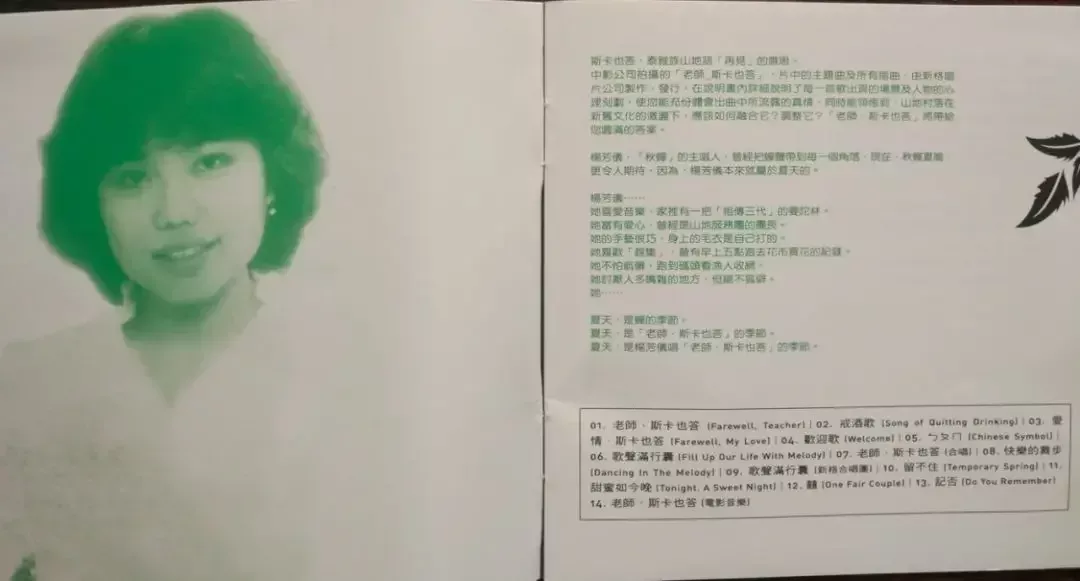 斯卡也答，泰雅族山地話「再見」的意思。
中影公司拍攝的「老師_斯卡也答」，片中的主題曲及所有插曲，由新格唱
片公司製作、發行，在說明書內詳細說明了每一首歌出現的場景及人物的心
理刻劃，使您能充份體會出曲中所流露的真情，同時能領略到，山地村落在
新舊文化的激盪下，應該如何融合它？調整它？「老師，斯卡也答」將帶給
您圓滿的答案。
楊芳儀，「秋蟬」的主唱人，曾經把蟬聲帶到每一個角落，現在，秋蟬夏唱
更令人期待，因為，楊芳儀本來就屬於夏天的。
楊芳儀……
她喜愛音樂，家裡有一把「祖傳三代」的曼陀林。
她富有愛心，曾經是山地服務團的團長。
她的手藝很巧，身上的毛衣是自己打的。
她喜歡「趕集」，曾有早上五點跑去花市買花的記錄。
她不怕飢餓，跑到碼頭看漁人收網。
她討厭人多嘴雜的地方，但絕不孤僻。
她……
夏天，是蟬的季節。
夏天，是「老師，斯卡也答」的季節。
夏天，是楊芳儀唱「老師，斯卡也答」的季節。
01. 老師，斯卡也答 (Farewell, Teacher) | 02. 戒酒歌 (Song of Quitting Drinking) | 03. 愛
情，斯卡也答 (Farewell, My Love) | 04. 歡迎歌 (Welcome) | 05. ㄅㄆㄇ (Chinese Symbol) |
06. 歌聲滿行囊 (Fill Up Our Life With Melody) | 07. 老師，斯卡也答 (合唱) | 08. 快樂的舞步
(Dancing In The Melody) | 09. 歌聲滿行囊 (新格合唱團) | 10. 留不住 (Temporary Spring) | 11.
甜蜜如今晚 (Tonight, A Sweet Night) | 12. 囍 (One Fair Couple) | 13. 記否 (Do You Remember)
14. 老師，斯卡也答 (電影音樂)